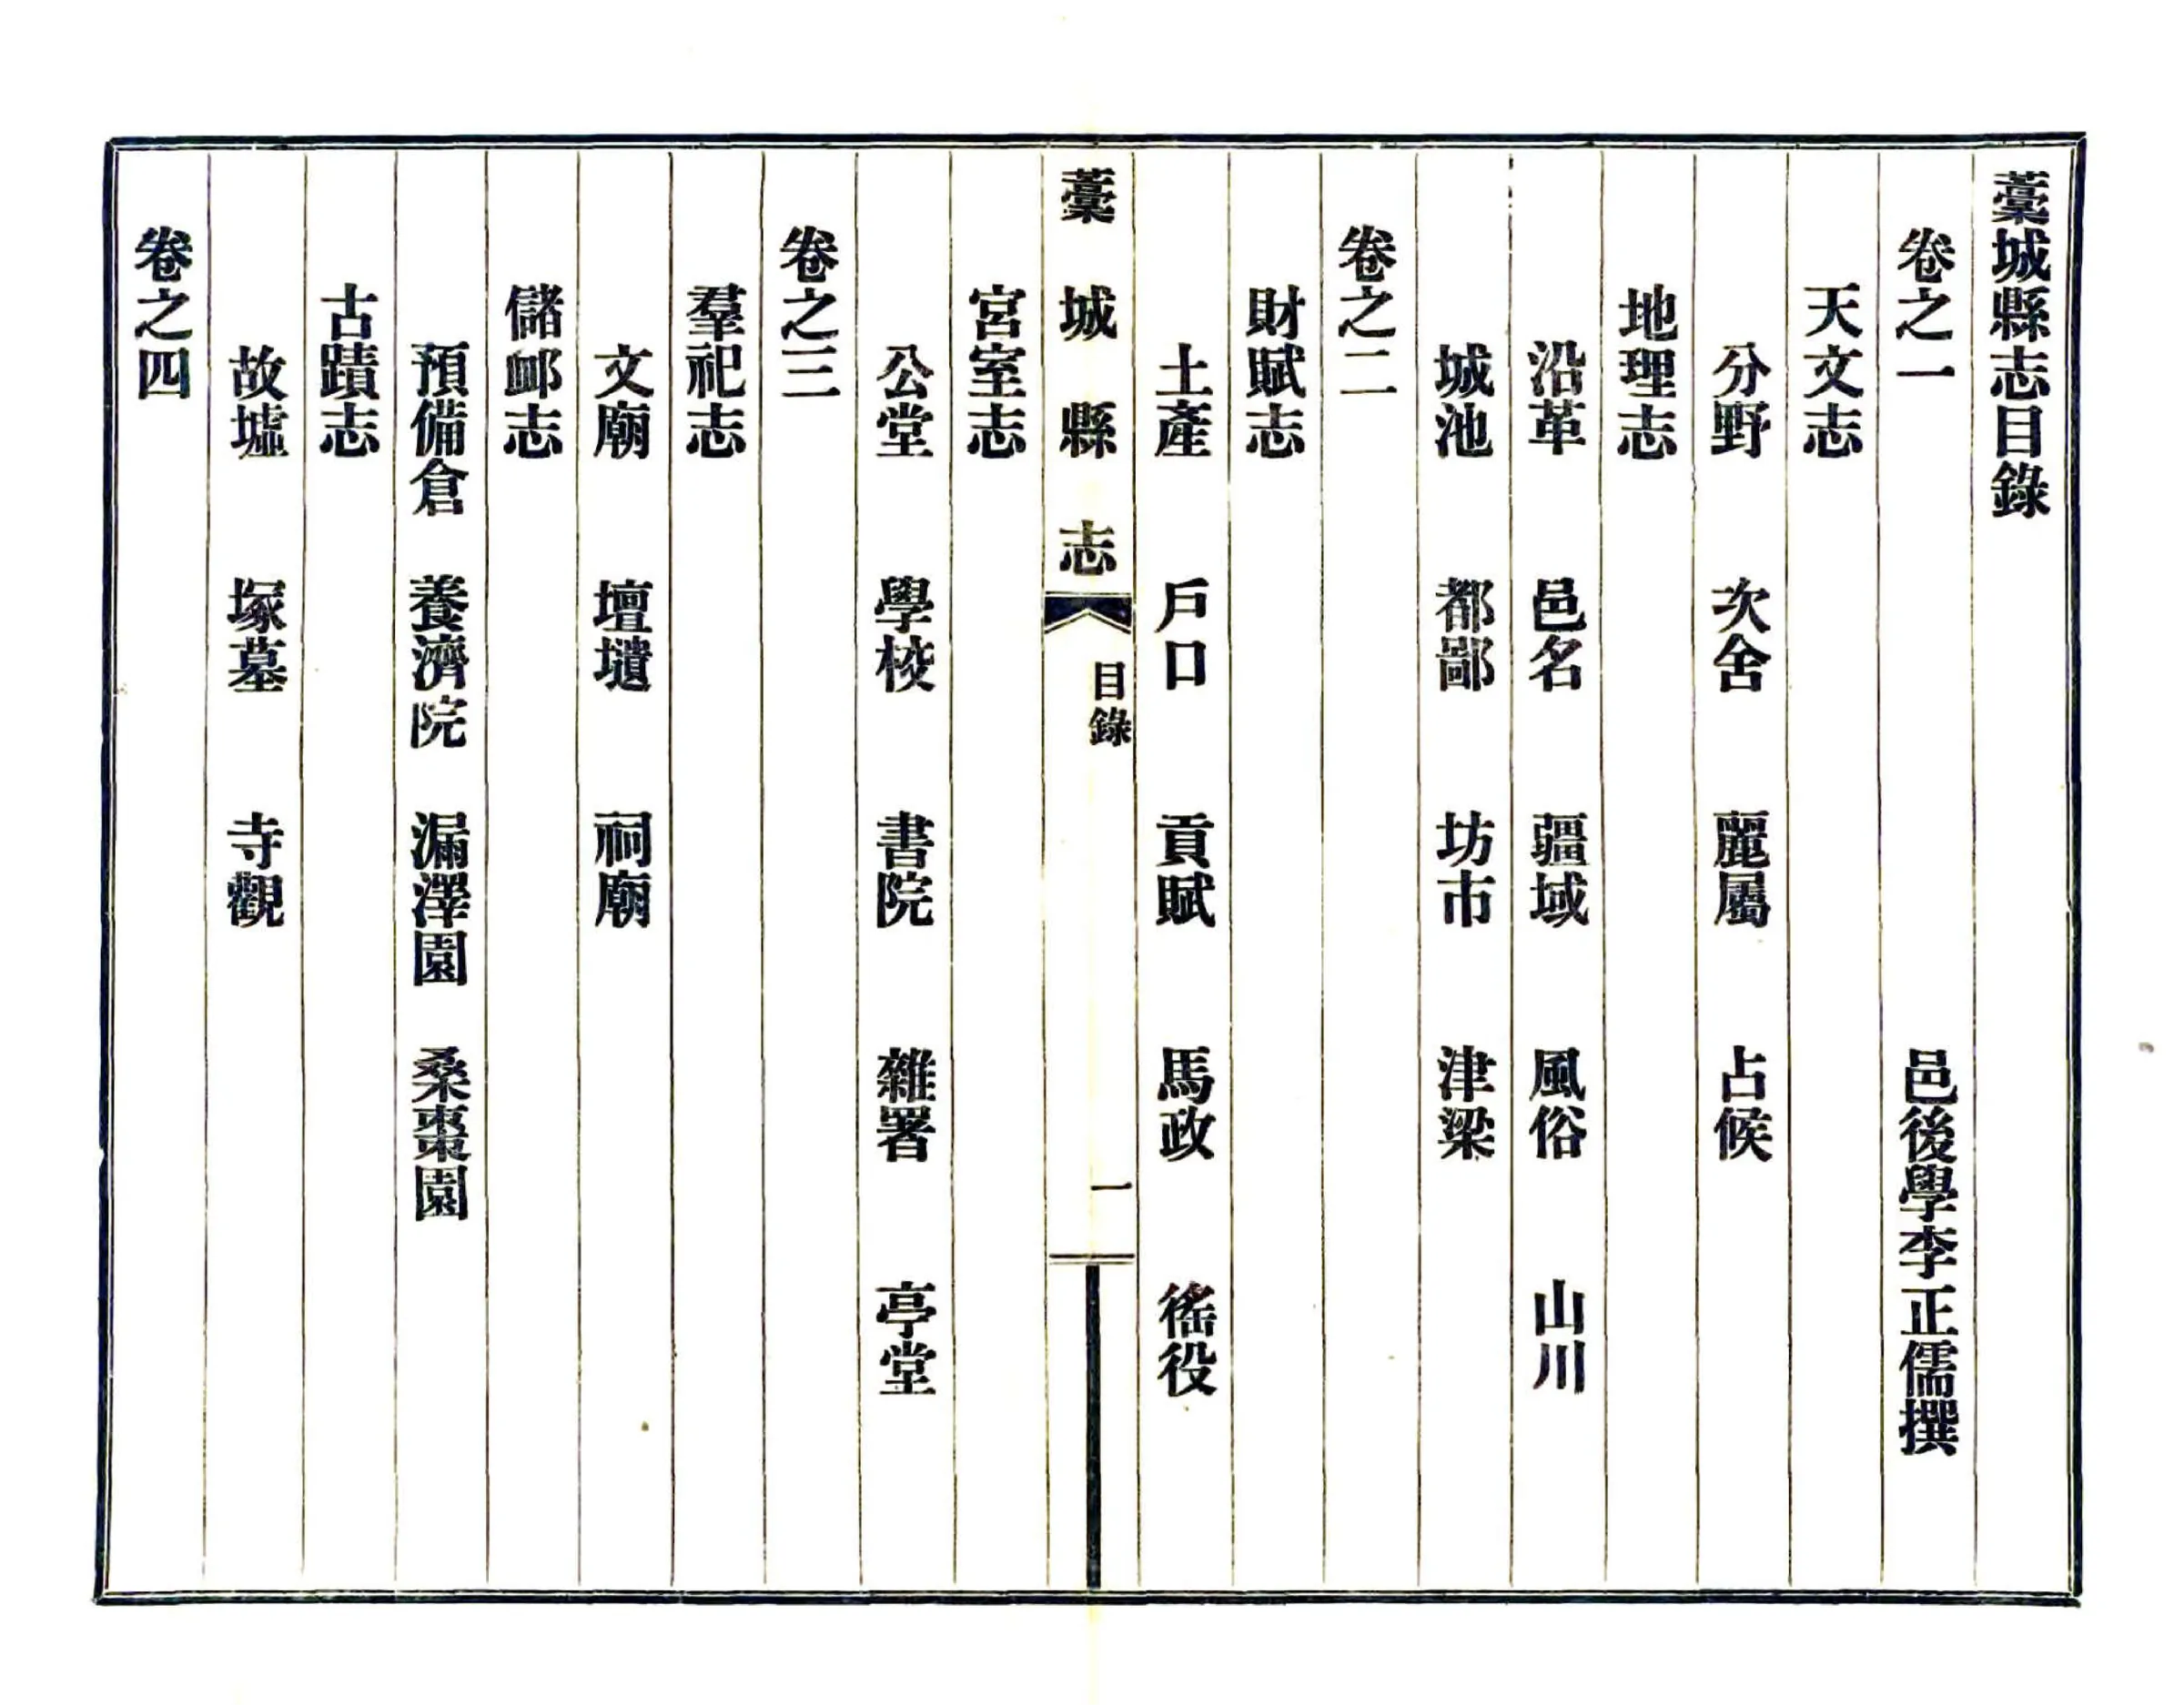 藁城縣志目錄
卷之一 邑後學李正儒撰
天文志
分野 次舍 麗屬 占候
地理志
沿革 邑名 疆域 風俗 山川
城池 都鄙 坊市 津梁
卷之二
財賦志
土產 戶口 貢賦 馬政 徭役
藁城縣志 目錄 一
宮室志
公堂 學校 書院 雜署 亭堂
卷之三
羣祀志
文廟 壇壝 祠廟
儲䘏志
預備倉 養濟院 漏澤園 桑棗園
古蹟志
故墟 塚墓 寺觀
卷之四